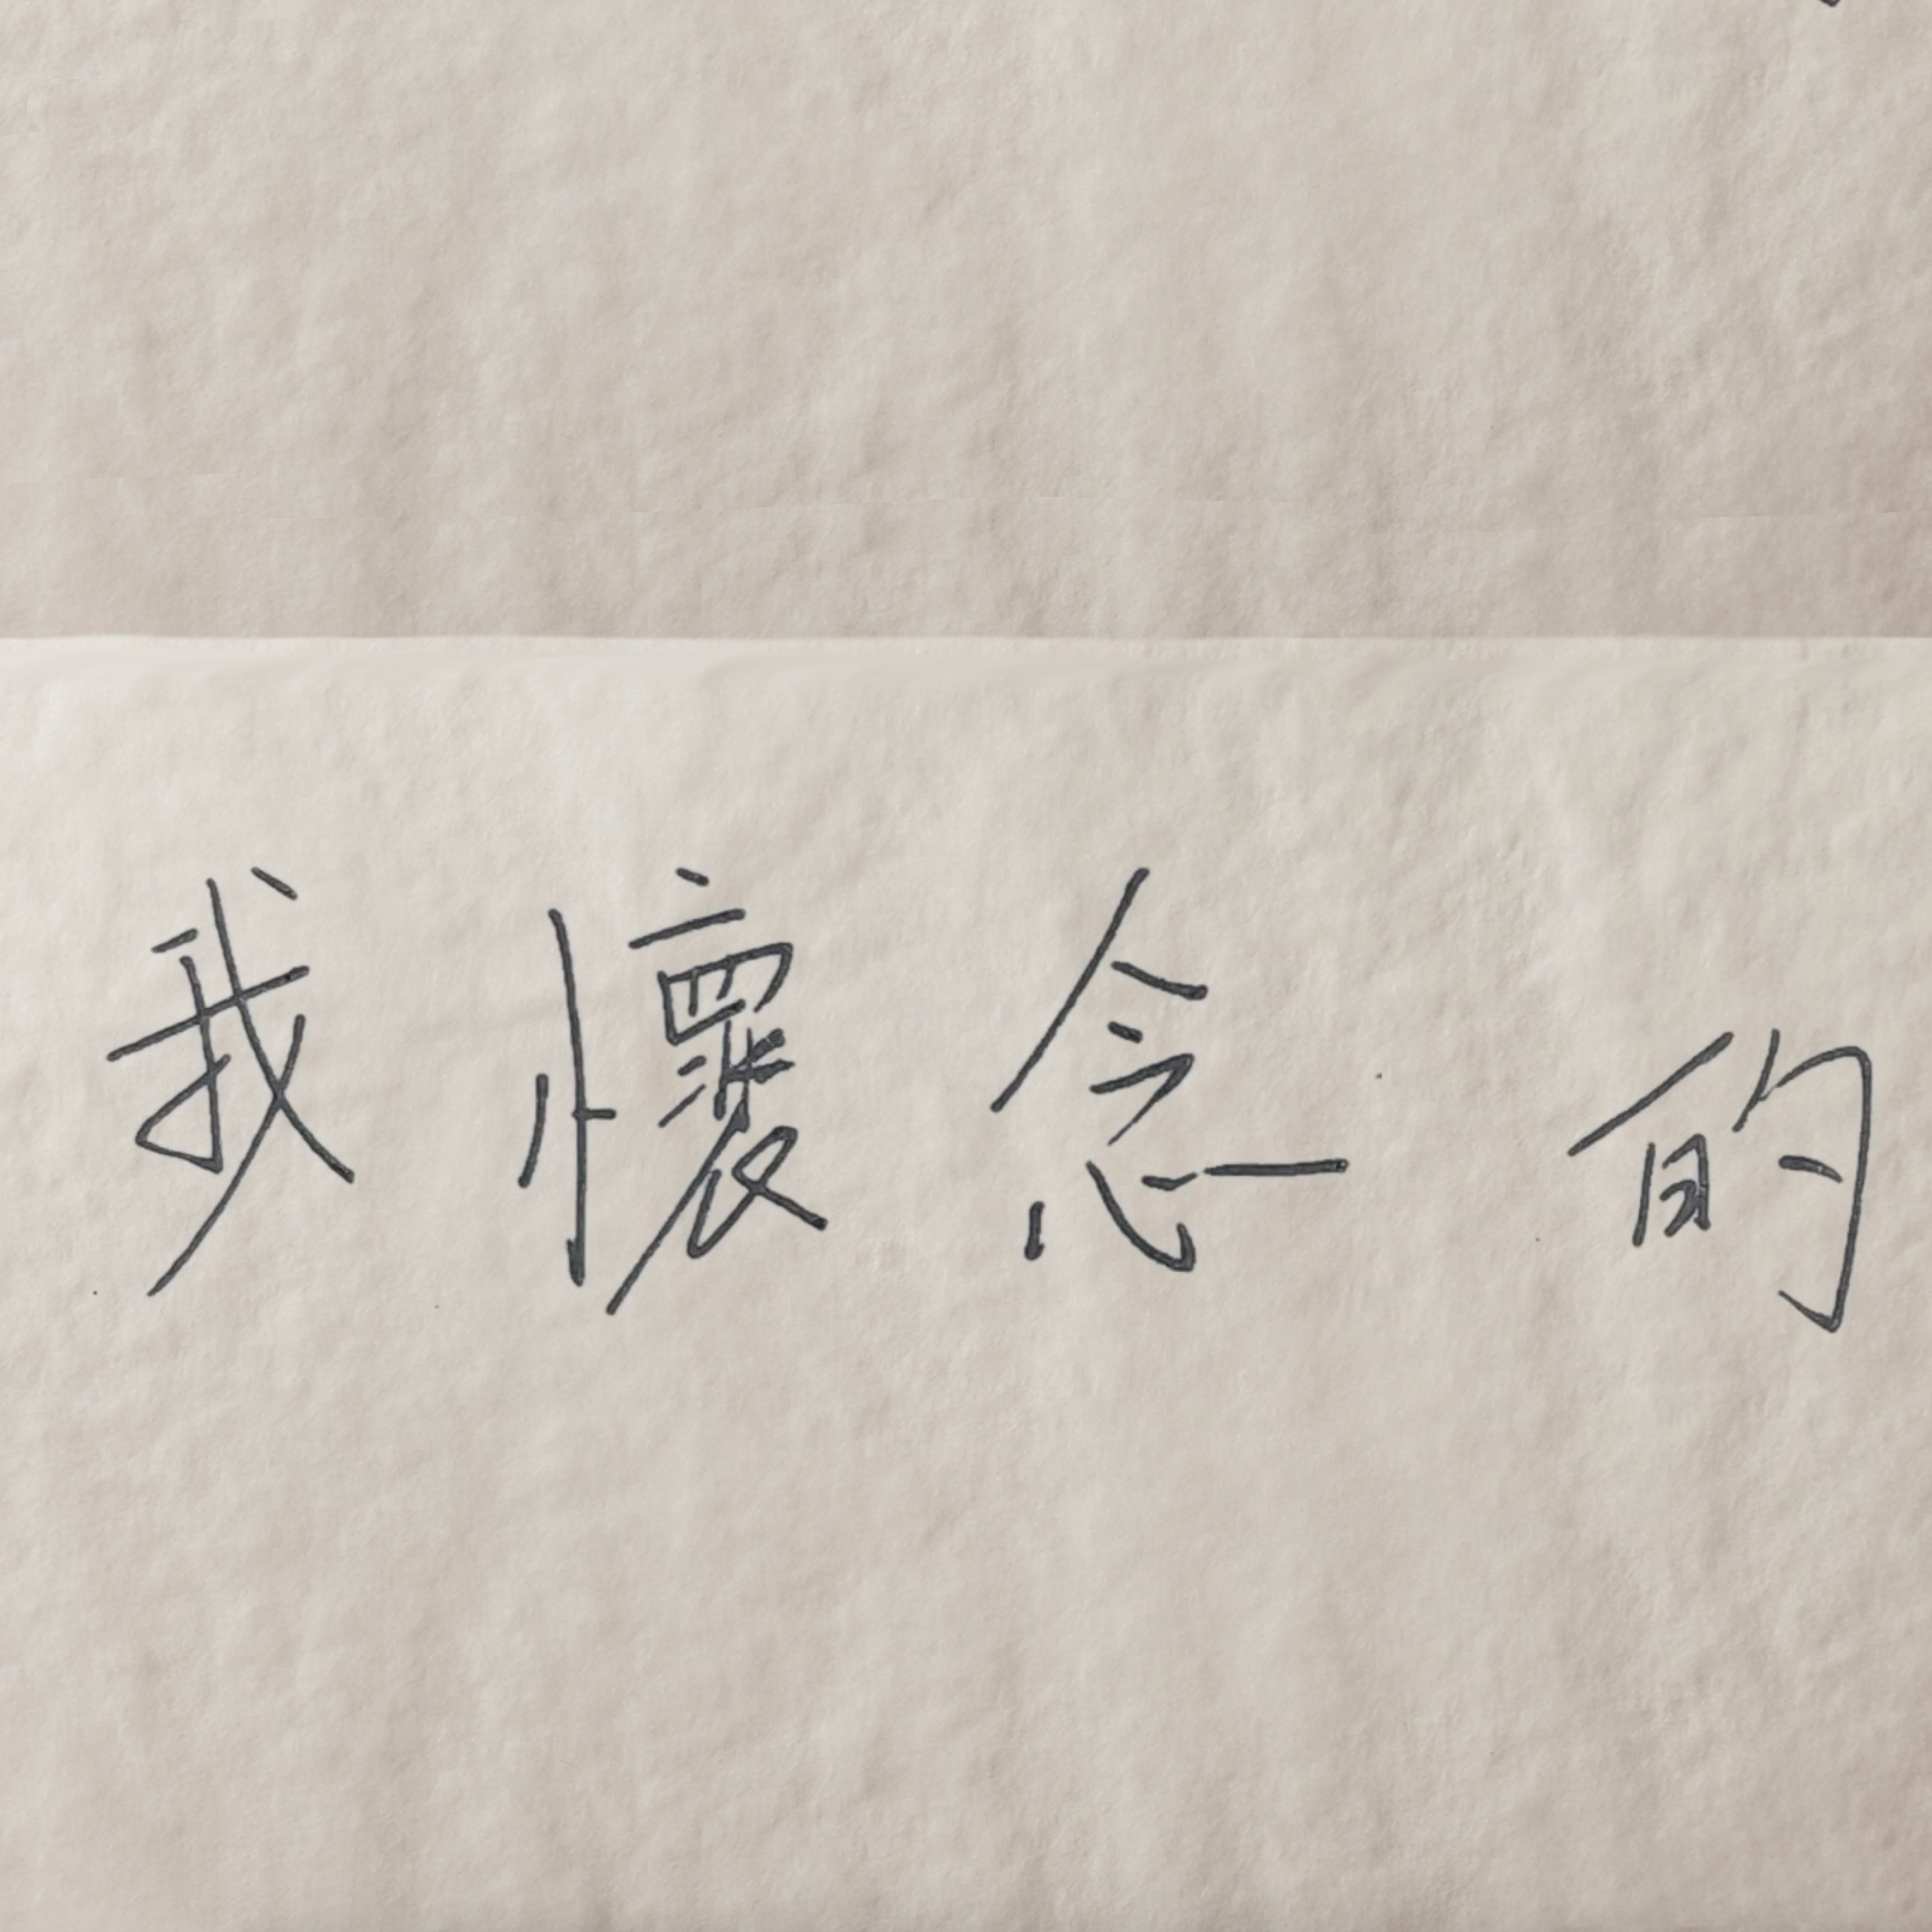 我懷念的